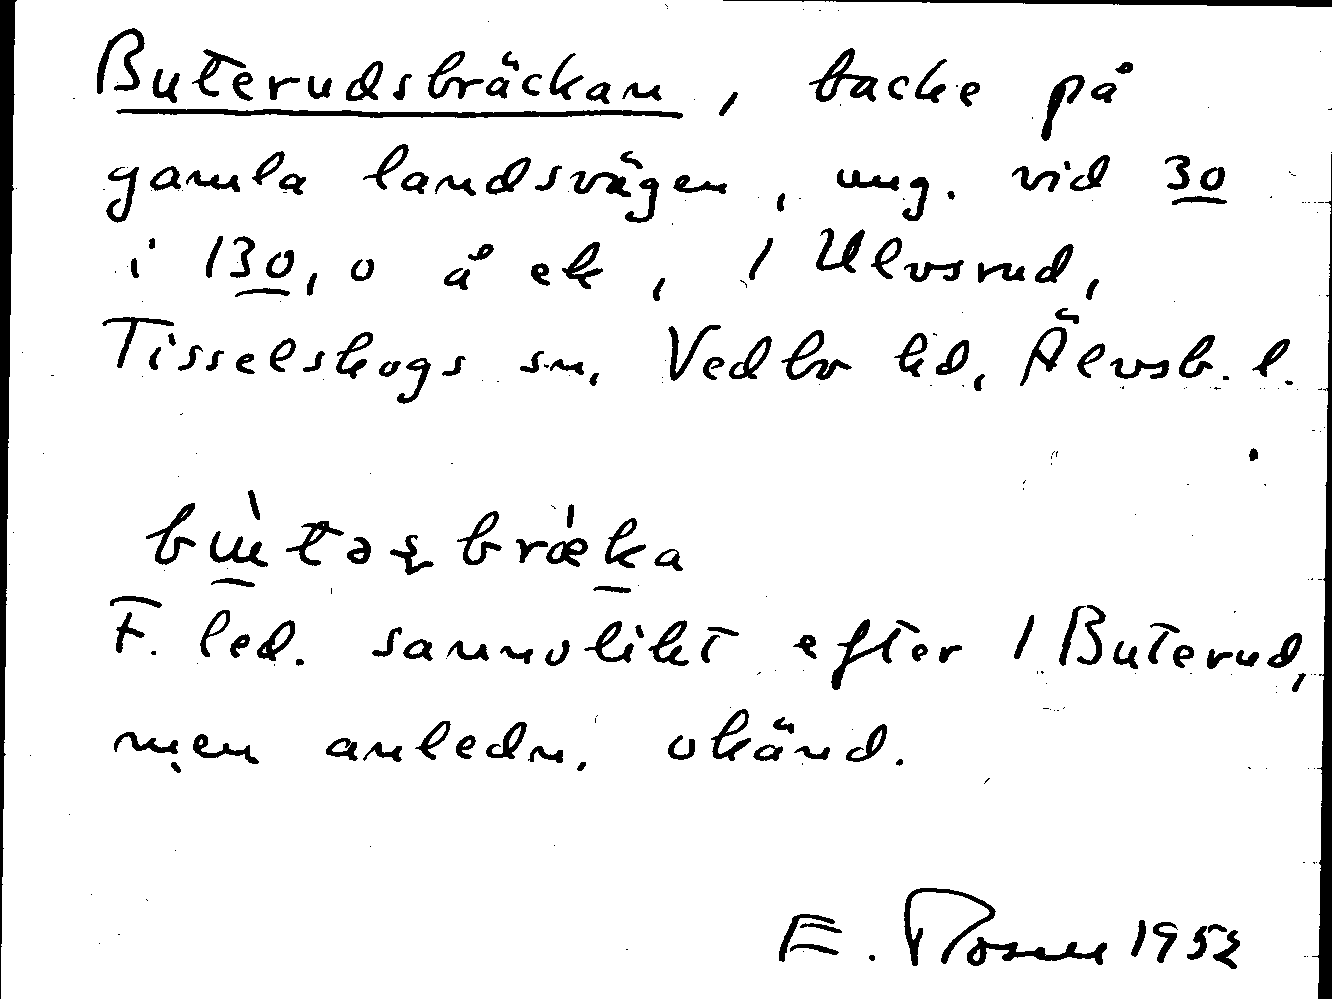 Buterudsbräckan, backe på
gamla landsvägen, ung. vid 30
i 130,0 å ek, 1 Ulvsrud,
Tisselskogs sn, Vedbo hd, Älvsb. l.
bʉ̀təʂbræ̀ka
F. led. sannolikt efter 1 Buterud,
men anledn. okänd.
E. Rosell 1952